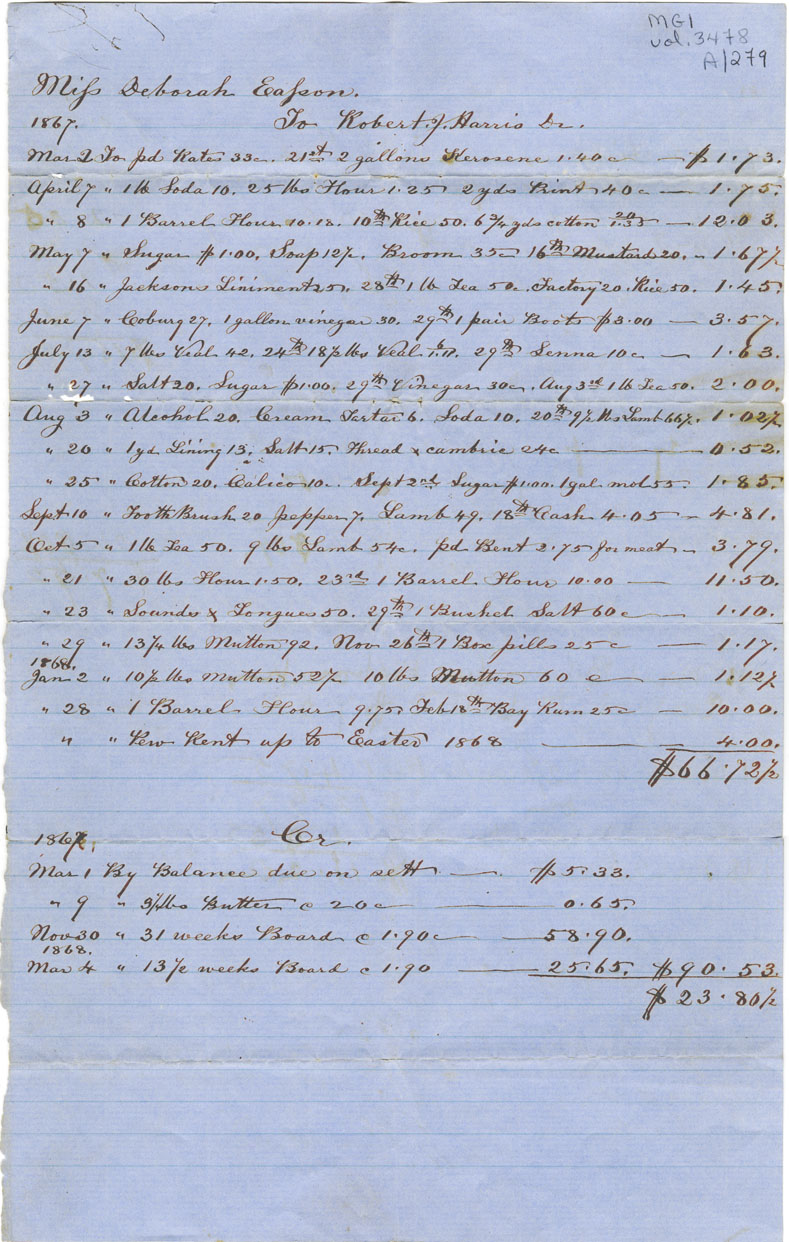 MG1
vol. 3478
A/279
Miſs Deborah Eaſson.
1867. To Robert J. Harris Dr.
Mar 2 To pd Rates 33c. 21st 2 gallons Kerosene 1.40c — $1.73.
April 7 " 1 lb Soda 10. 25 lbs Flour 1.25 2 yds Print 40c — 1.75.
" 8 " 1 Barrel Flour 10.18. 10th Rice 50. 6 3/4 yds cotton 20 1.35 — 12.03.
May 7 " Sugar $1.00. Soap 12½. Broom 35c 16th Mustard 20. " 1.67½
" 16 " Jacksons Liniment 25. 28th 1 lb Tea 50c. Factory 20. Rice 50. 1.45.
June 7 " Coburg 27. 1 gallon vinegar 30. 29th 1 pair Boots $3.00 — 3.57.
July 13 " 7 lbs Veal 42. 24th 18½ lbs Veal 6 1.11. 29th Senna 10c — 1.63.
" 27 " Salt 20. Sugar $1.00. 29th Vinegar 30c. Aug 3rd 1 lb Tea 50. 2.00.
Aug 3 " Alcohol 20. Cream Tartar 6. Soda 10. 20th 9½ lbs Lamb 66½. 1.02½
" 20 " 1 yd Lining 13. Salt 15. Thread & cambric 24c — 0.52.
" 25 " Cotton 20. Calico 10c. Sept 2nd Sugar $1.00. 1 gal. mol 55. 1.85.
Sept 10 " Tooth Brush 20 pepper 7. Lamb 49. 18th Cash 4.05 — 4.81.
Oct 5 " 1 lb Tea 50. 9 lbs Lamb 54c. pd Bent 2.75 for meat — 3.79.
" 21 " 30 lbs Flour 1.50. 23rd 1 Barrel Flour 10.00 — 11.50.
" 23 " Sounds & Tongues 50. 29th 1 Bushel Salt 60c — 1.10.
" 29 " 13¼ lbs Mutton 92. Nov 26th 1 Box pills 25c — 1.17.
1868.
Jan 2 " 10½ lbs Mutton 52½ 10 lbs Mutton 60 c — 1.12½
" 28 " 1 Barrel Flour 9.75 Feb 18th Bay Rum 25c — 10.00.
" " Pew Rent up to Easter 1868 — 4.00.
$66.72½
1867. Cr.
Mar 1 By Balance due on sett — $5.33.
" 9 " 3¼ lbs Butter c 20c — 0.65.
Nov 30 " 31 weeks Board c 1.90c — 58.90.
1868.
Mar 4 " 13½ weeks Board c 1.90 — 25.65. $90.53.
$23.80½